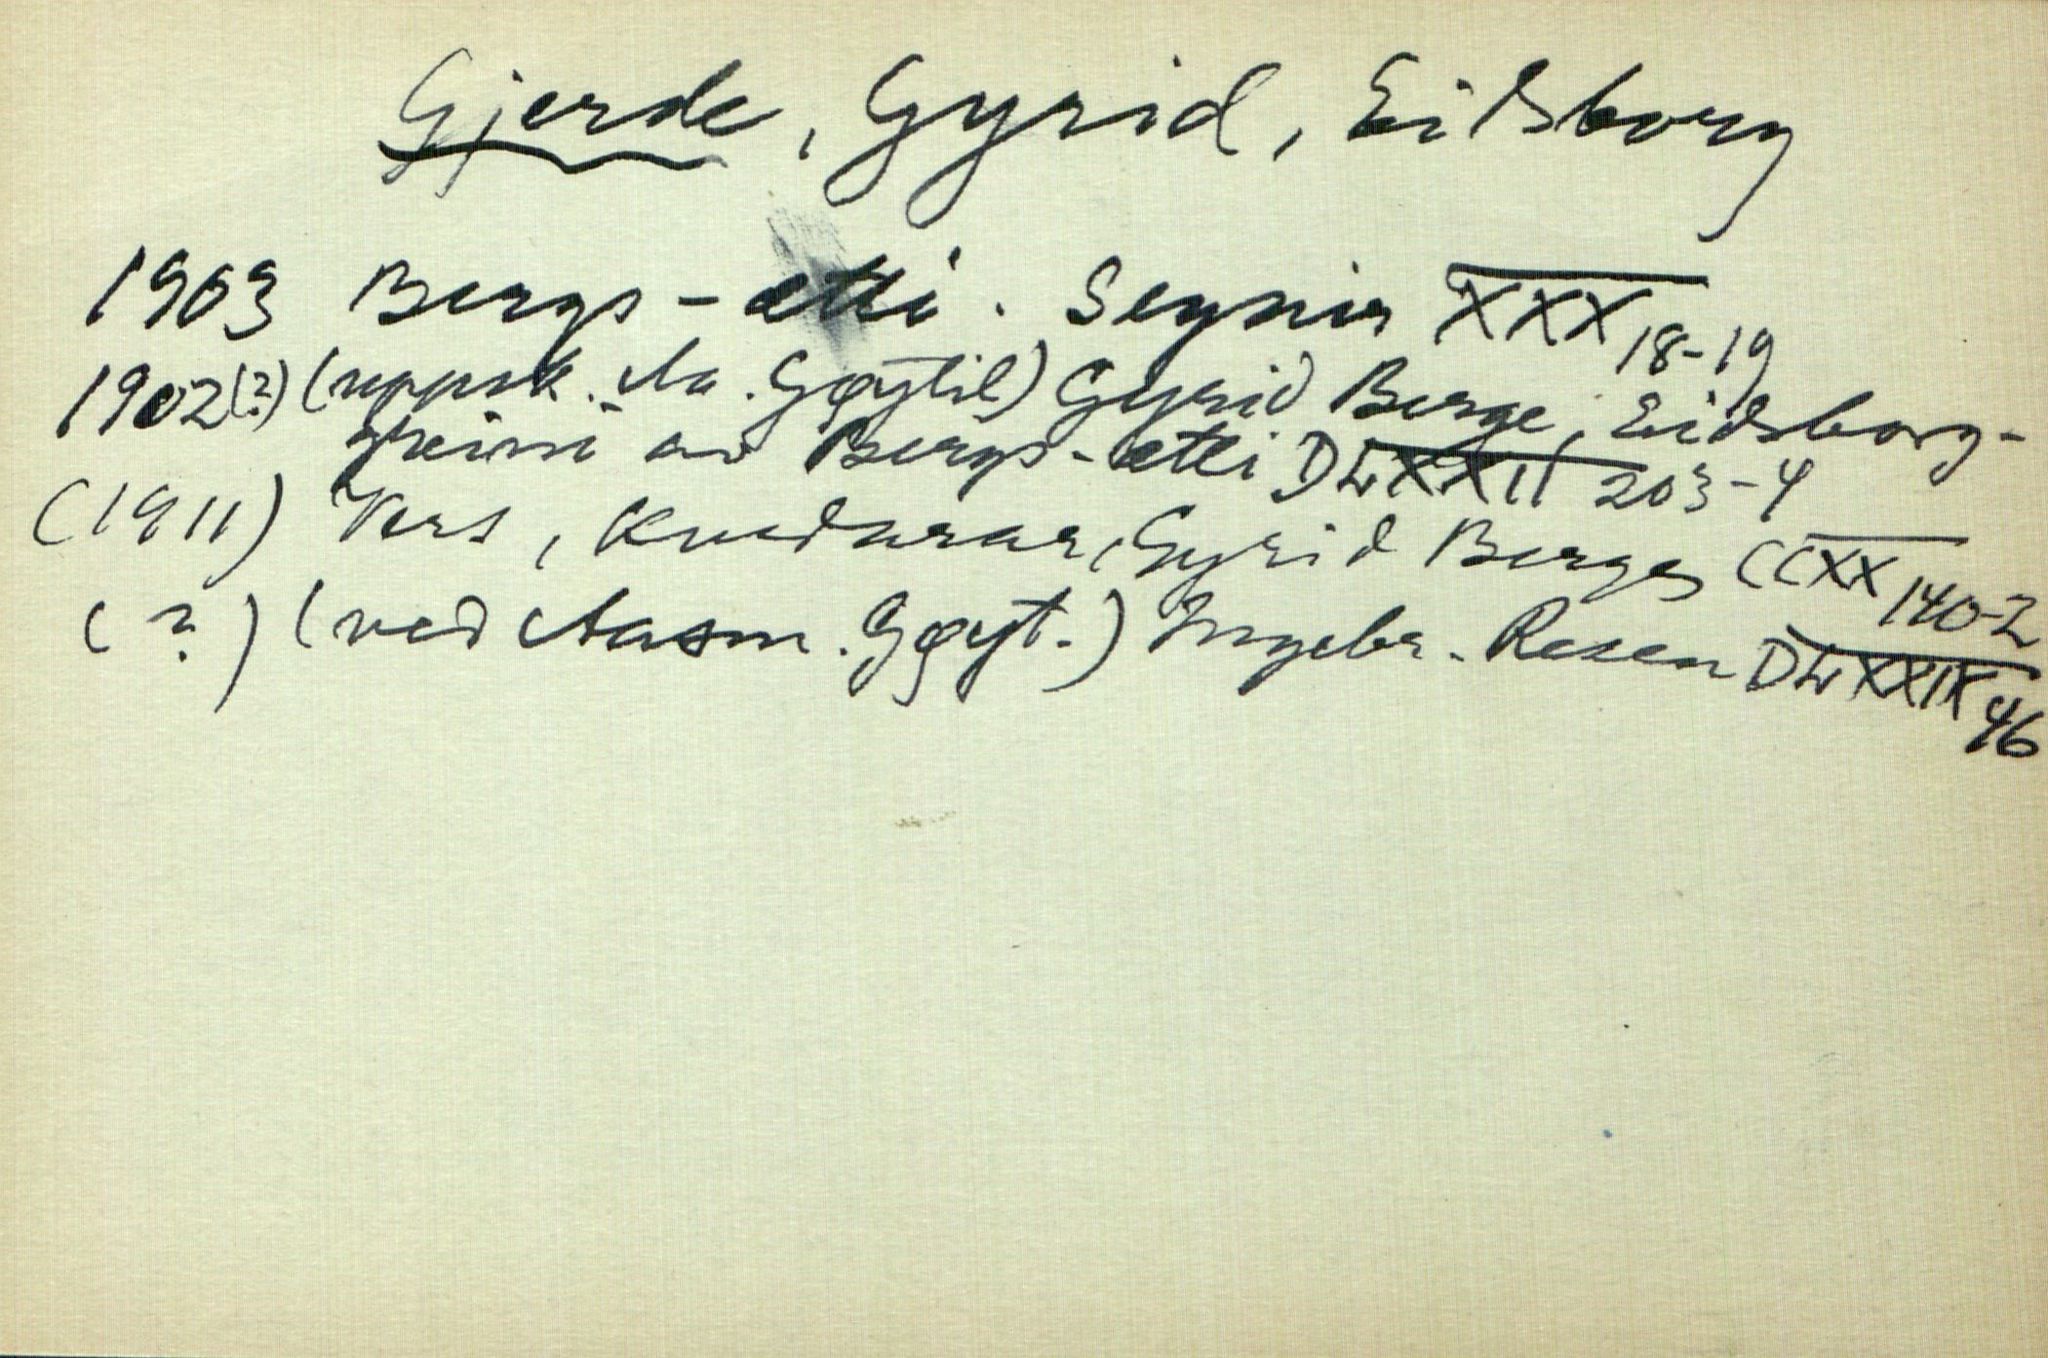 Gjerde, Gyrid, Eidsborg
1903 Bergs-ætti. Segnir XXX 18-19
1902(?) (uppsk. Aa. Gøytil) Gyrid Berge, Eidsborg-
greini av Bergs-ætti DLXXII 203-4
(1911) Vers, Kvedarar, Gyrid Berges CCXX 140-2
(?) (ved Aasm. Gøyt.) Ingebr. Resen DLXXIX 46